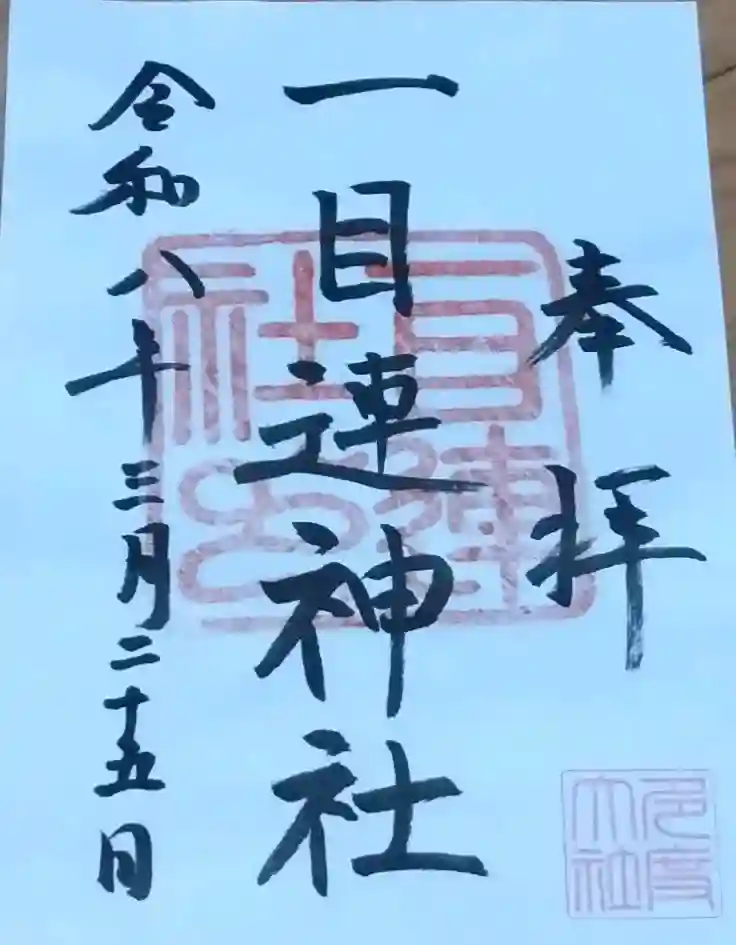 奉拝
一目連神社
令和八年三月二十五日
多度大社